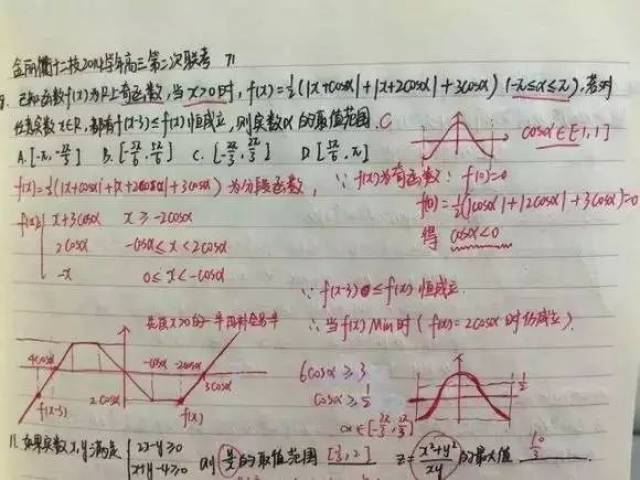 金丽衢十二校2014学年高三第二次联考 71
8. 已知函数f(x)为R上奇函数,当x>0时, f(x)=½(|x+cosα|+|x+2cosα|+3cosα) (-π≤α≤π), 若对
任意实数x∈R, 都有f(x-3)≤f(x)恒成立, 则实数α的取值范围. C
cosα∈[-1,1]
A. [-π,-2π/3] B. [-5π/6, 5π/6] C. [-2π/3, 2π/3] D. [5π/6, π]
f(x)=½(|x+cosα|+|x+2cosα|+3cosα) 为分段函数, ∵ f(x)为奇函数: f(0)=0
f(0)=½(|cosα|+|2cosα|+3cosα)=0
得 cosα<0
f(x) x+3cosα x≥-2cosα
2cosα -cosα≤x<2cosα
-x 0≤x<-cosα
∵ f(x-3)≤f(x) 恒成立.
∴ 当f(x) Min时 (f(x)=2cosα时仍成立).
先画x>0的一半再补全另一半
4cosα -cosα -2cosα 3cosα
f(x-3) 2cosα f(x)
6cosα≥3
cosα≥½
½
α∈[-2π/3, 2π/3]
11. 如果实数x,y满足 2x-y≥0
x+y-4≥0
则 y/x 的取值范围 [⅓,2] z=(x²+y²)/xy 的最大值 10/3